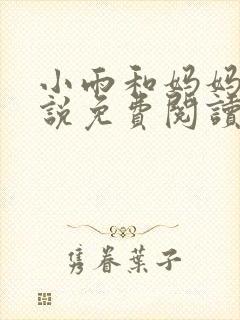 小雨和妈妈
說免費閱讀
隽眷葉子